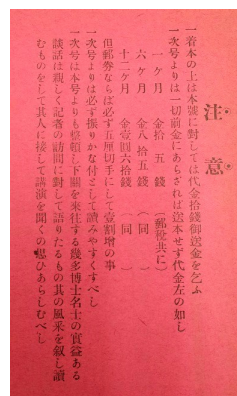 注意
一着本の上は本號に對しては代金拾錢御送金を乞ふ
一次號よりは一切前金にあらされば送本せず代金左の如し
一ヶ月　金拾五錢（郵稅共に）
六ヶ月　金八拾五錢（同）
十二ヶ月　金壹圓六拾錢（同）
但郵券ならば必ず五厘切手にして壹割增の事
一次號よりは必ず振りかな付として讀みやすくすべし
一次號は本號よりも整頓し下關を來往する幾多博士名士の實益ある
談話は親しく記者の訪問に對して語りたるもの其の風采を叙し讀
むものをして其人に接して講演を聞くの思ひあらしむべし